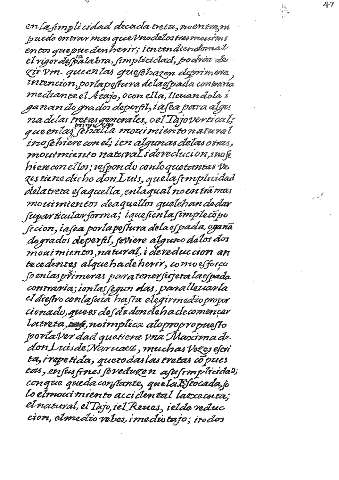 47
en la simplicidad de cada treta, no entra, ni
puede entrar mas que uno de los tres movimi
entos que pueden herir; i entendiendo mal
el rigor desta palabra, simplicidad, podria de
zir V m. que en las que se hazen de primera
intencion, por la postura de la espada contraria
mediante el Atajo, o con ella, llevandola i
ganando grados de perfil, i a sea para algu
na de las tretas generales, o el Tajo vertical;
que en las primeras se halla movimiento natural
i no se hiere con el; i en algunas de las otras,
movimiento natural, i de reducion, i no se
hiere con ellos; respondo con lo que tantas ve
zes tiene dicho don Luis, que la simplicidad
de la treta es aquella, en la qual no entra mas
movimiento de aquellos que le han de dar
su particular forma; i que si en la simple opo
sicion, i a sea por la postura de la espada, o ganā
do grados de perfil, se viere alguno de los dos
movimientos, natural, i de reducion an
tecedentes al que ha de herir, como es forço
so en las primeras para tener sugeta la espada
contraria; i en las segundas, para llevarla
el diestro con la suia hasta elegir medio propor
cionado, que es desde donde ha de començar
la treta, no implica a lo propropuesto
por la verdad que tiene una Maxima de
don Luis de Narvaez, muchas vezes escri
ta, i repetida, que todas las tretas cōpues
tas, en sus fines se reduzen a su simplicidad,
con que queda constante, que la Estocada, so
lo el movimiento accidental la executa;
el natural, el Tajo, i el Reves, i el de reduc
cion, el medio rebes, i medio tajo; i no dos